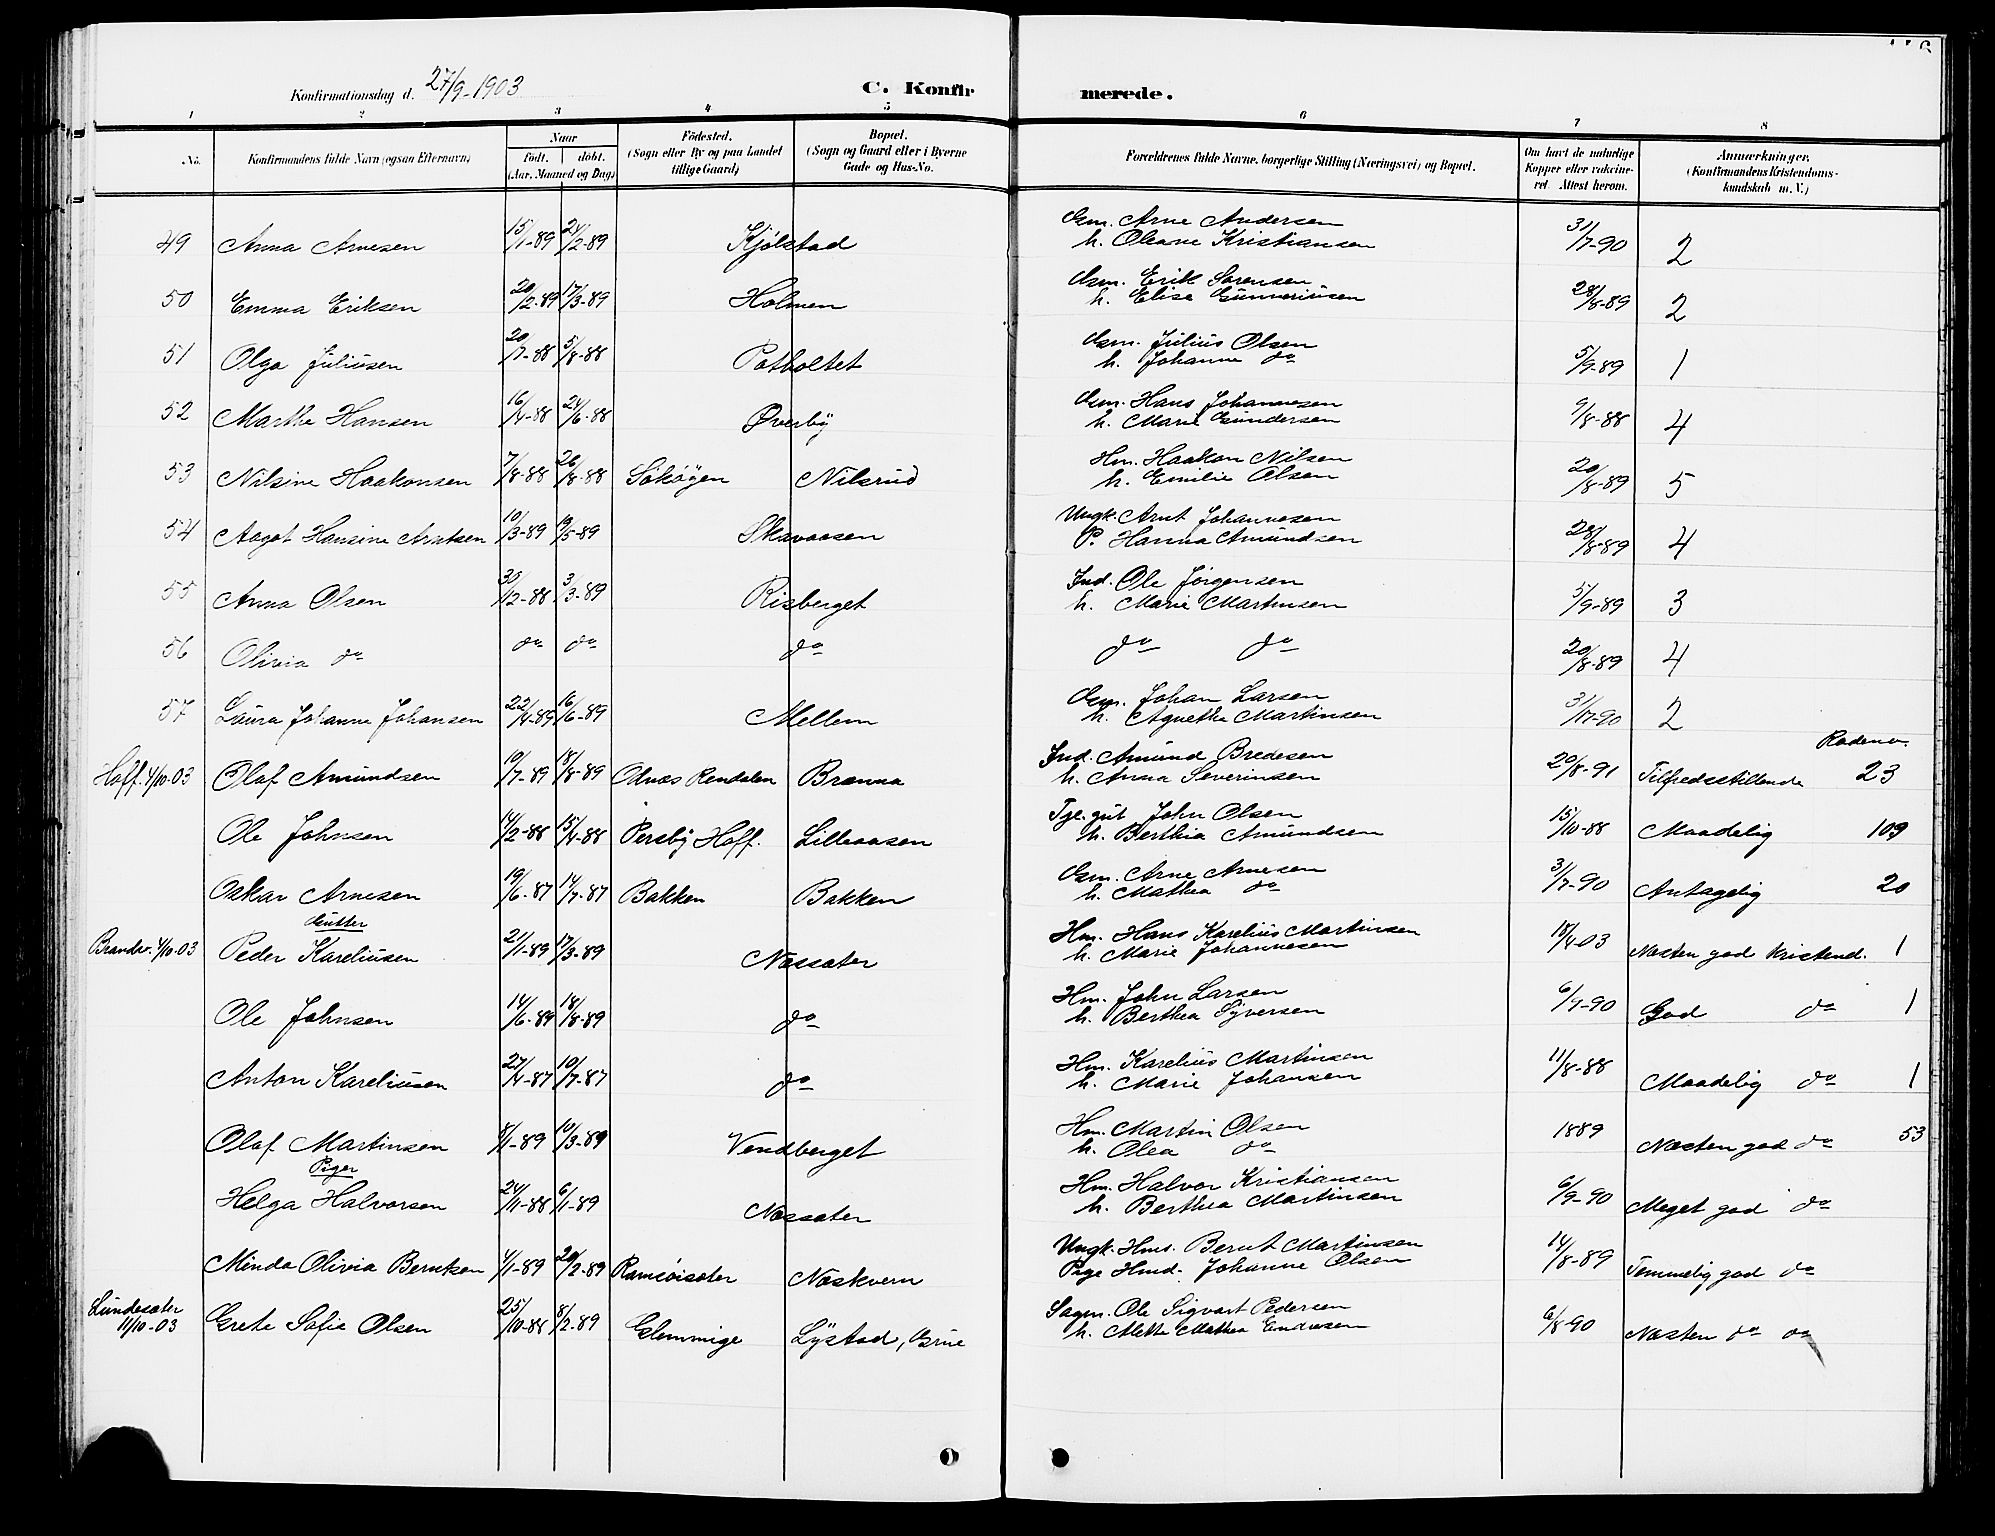 Konfirmationsdag d. 27/9-1903 C. Konfirmerede.
1 2 3 4 5 6 7 8
No. Konfirmandens fulde Navn (ogsaa Efternavn) Naar født. døbt. (Aar, Maaned og Dag) Födested. (Sogn eller By og paa Landet tillige Gaard) Bopæl. (Sogn og Gaard eller i Byerne Gade og Hus-No. Forældrenes fulde Navne, borgerlige Stilling (Næringsvei) og Bopæl. Om havt de naturlige Kopper eller vakcineret. Attest herom. Anmærkninger. (Konfirmandens Kristendomskundskab m. V.)
49 Anna Arnesen 15/1-89 24/2-89 Kjølstad Gsm. Arne Andersen 31/7-90 2
h. Oleane Kristiansen
50 Emma Eriksen 20/2-89 17/3-89 Holmen Gsm. Erik Sørensen 28/8-89 2
h. Elise Gunneriusen
51 Olga Juliusen 20/7-88 5/8-88 Potholtet Gsm. Julius Olsen 5/9-89 1
h. Johanne do
52 Marthe Hansen 16/4-88 24/6-88 Øverby Gsm. Hans Johannesen 9/8-88 4
h. Marie Gundersen
53 Nilsine Haakonsen 7/8-88 26/8-88 Sikøyen Nilsrud Hm. Haakon Nilsen 20/8-89 5
h. Emilie Olsen
54 Aagot Hansine Arntsen 10/3-89 19/5-89 Skavaasen Ungk. Arnt Johannesen 28/8-89 4
P. Hanna Amundsen
55 Anna Olsen 30/12-88 3/3-89 Risberget Ind. Ole Jørgensen 5/9-89 3
h. Marie Martinsen
56 Olivia do do do do do do 20/8-89 4
57 Laura Johanne Johansen 22/4-89 16/6-89 Mellem Gsm. Johan Larsen 31/7-90 2
h. Agnethe Martinsen
Radeno.
Hoff. 4/10-03 Olaf Amundsen 10/7-89 18/8-89 Otnæs Rendalen Brænna Ind. Amund Bredesen 20/8-91 Tilfredsstillende 23
h. Anna Severinsen
Ole Johnsen 14/2-88 15/4-88 Persby Hoff. Lilleaasen Tje.gut John Olsen 15/10-88 Maadelig 109
h. Berthia Amundsen
Oskar Arnesen 19/6-87 14/7-87 Bakken Bakken Gsm. Arne Arnesen 31/7-90 Antagelig 20
h. Mathea do
Gutter
Brandv. 4/10-03 Peder Kareliusen 21/1-89 17/3-89 Næssæter Hm. Hans Karelius Martinsen 18/4-03 Næsten god Kristend. 1
h. Marie Johannesen
Ole Johnsen 14/6-89 18/8-89 do Hm. John Larsen 6/9-90 God do 1
h. Berthea Syversen
Anton Kareliusen 27/4-87 10/7-87 do Hm. Karelius Martinsen 11/8-88 Maadelig do 1
h. Marie Johansen
Olaf Martinsen 8/1-89 10/3-89 Vendberget Hm. Martin Olsen 1889 Næsten god do 53
h. Olea do
Piger
Helga Halvorsen 24/11-88 6/1-89 Næssæter Hm. Halvor Kristiansen 6/9-90 Meget god do
h. Berthea Martinsen
Minda Olivia Berntsen 4/1-89 20/2-89 Ramsöisæter Næskvern Ungk. Hms. Bernt Martinsen 14/8-89 Temmelig god do
Pige Hmd. Johanne Olsen
Lundesæter
11/10-03 Grete Sofie Olsen 25/10-88 8/2-89 Glemminge Lystad, Grue Sagm. Ole Sigvart Pedersen 6/8-90 Næsten do do
h. Mette Mathea Endresen